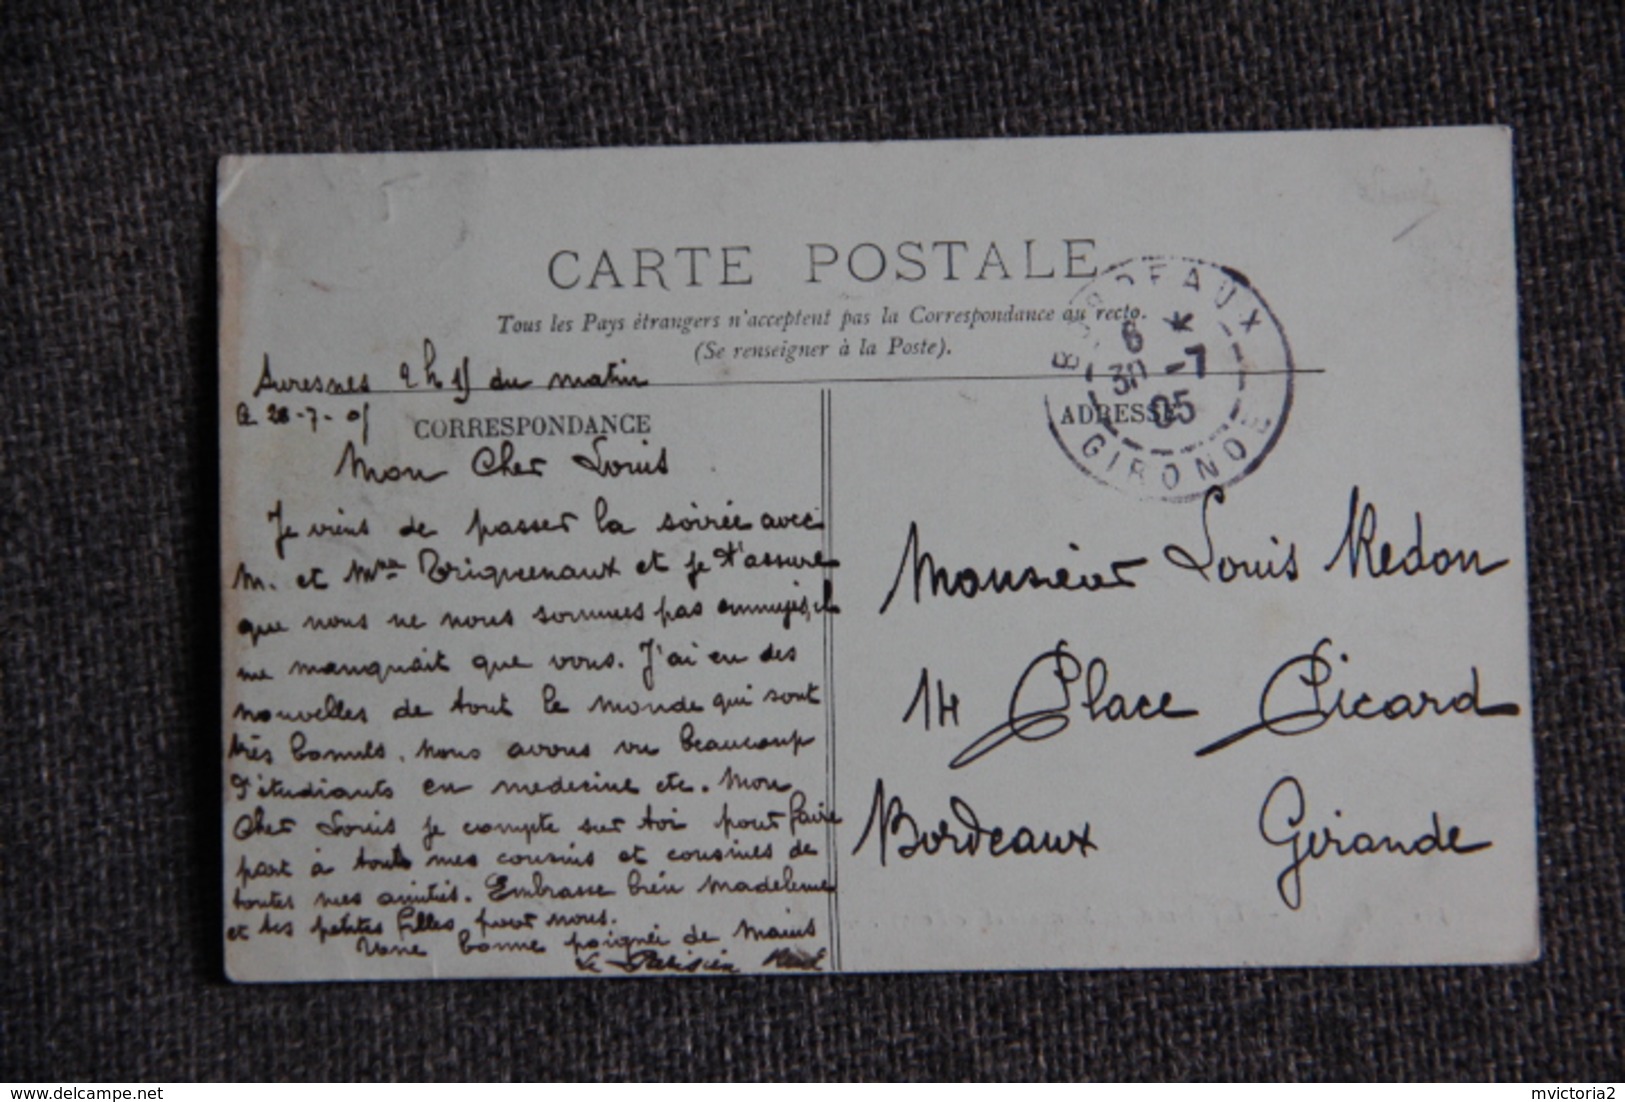 CARTE POSTALE
Tous les Pays étrangers n'acceptent pas la Correspondance au recto.
(Se renseigner à la Poste).
BORDEAUX
6 *
30 -7
05
GIRONDE
Suresnes 2 h 15 du matin
28-7-05
CORRESPONDANCE
Mon Cher Louis
Je viens de passer la soirée avec
M. et Mme Triquenaux et je t'assure
que nous ne nous sommes pas ennuyés, il
me manquait que vous. J'ai eu des
nouvelles de tout le monde qui sont
très bonnes. Nous avons vu beaucoup
d'étudiants en medecine etc. Mon
Cher Louis je compte sur toi pour faire
part à touts mes cousins et cousines de
toutes mes amitiés. Embrasse bien Madeleine
et tes petites filles pour nous.
Une bonne poignée de mains
Le Parisien René
ADRESSE
Monsieur Louis Redon
14 Place Picard
Bordeaux Gironde
mvictoria2